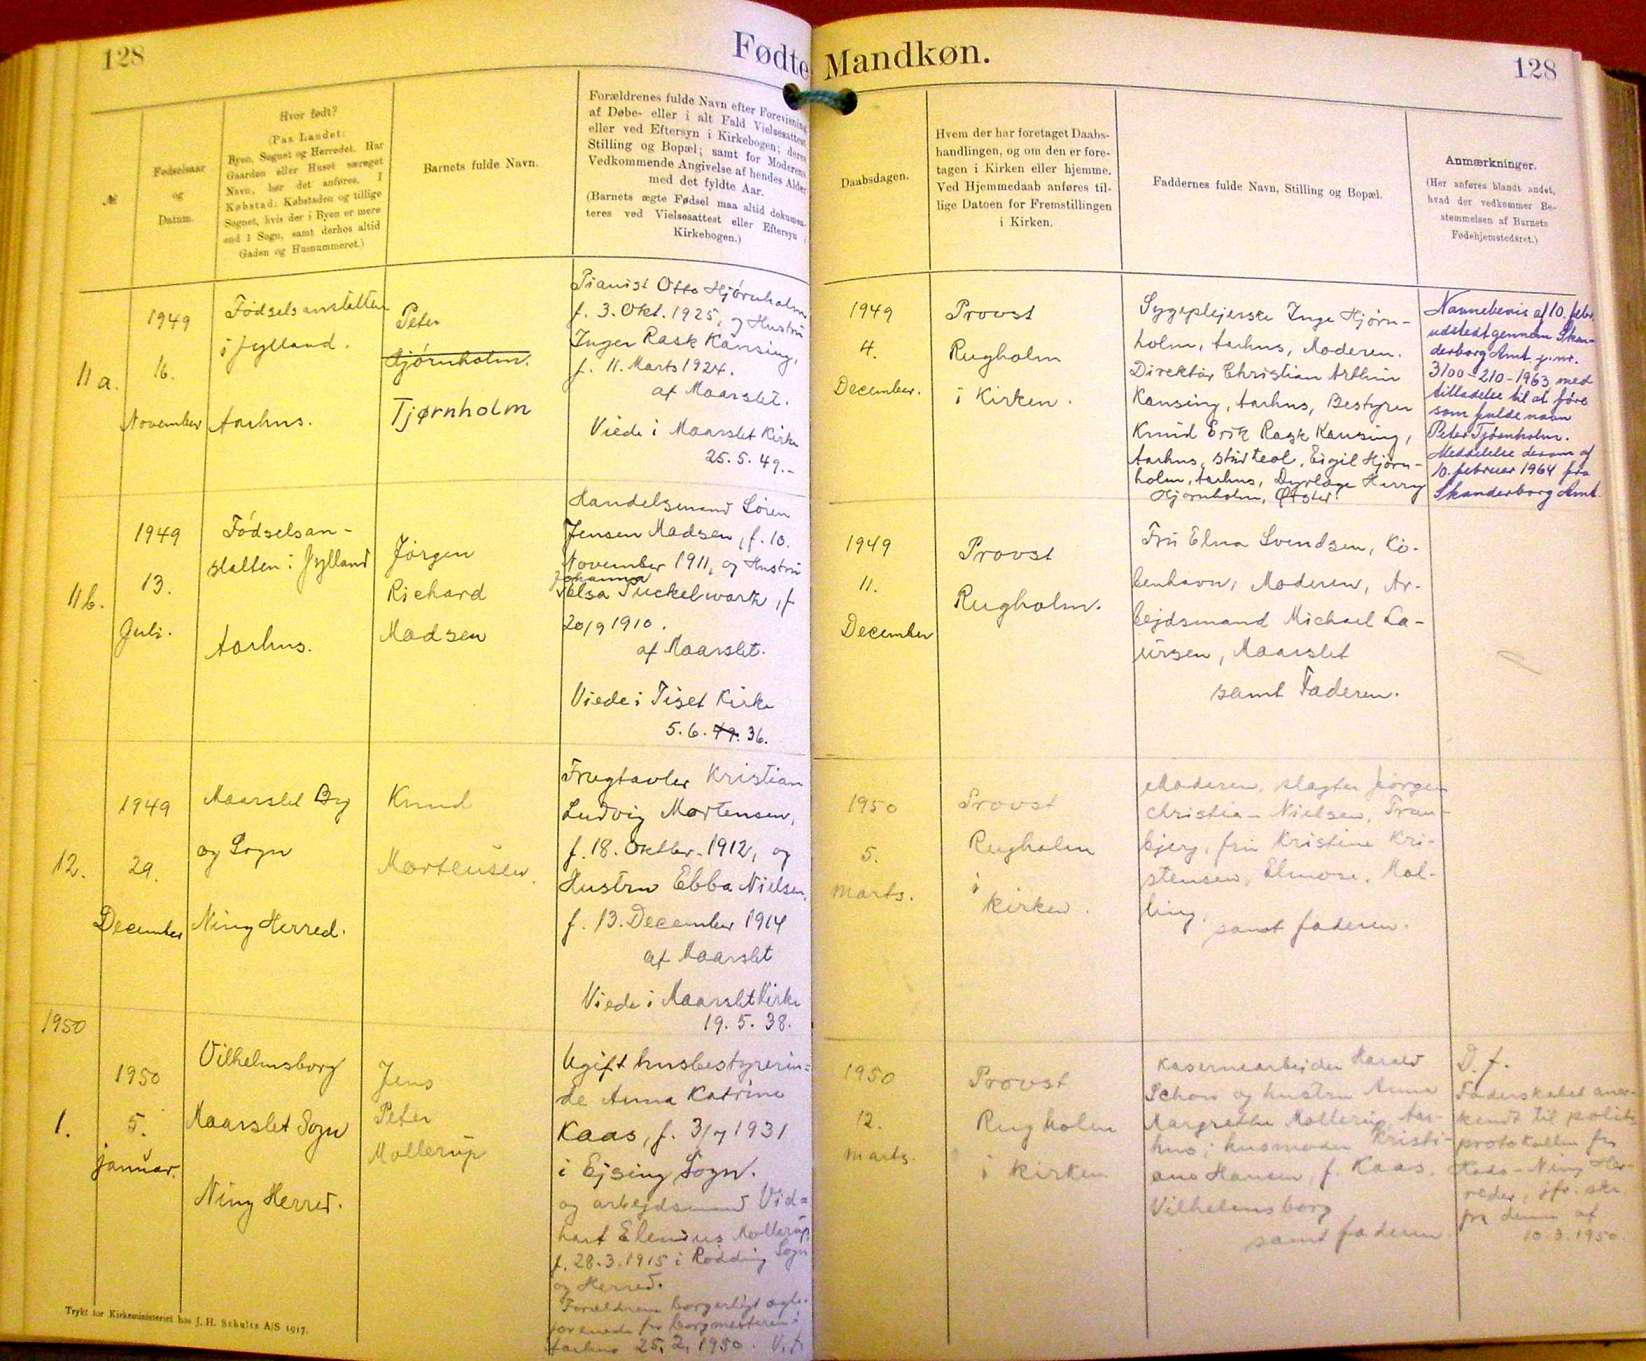 128
Fødte Mandkøn.
128
№
Fødselsaar
og
Datum.
Hvor født?
(Paa Landet:
Byen, Sognet og Herredet. Har
Gaarden eller Huset særeget
Navn, bør det anføres. I
Købstad: Købstaden og tillige
Sognet, hvis der i Byen er mere
end 1 Sogn, samt derhos altid
Gaden og Husnummeret.)
Barnets fulde Navn.
Forældrenes fulde Navn efter Forevisning
af Døbe- eller i alt Fald Vielsesattest
eller ved Eftersyn i Kirkebogen; deres
Stilling og Bopæl; samt for Moderens
Vedkommende Angivelse af hendes Alder
med det fyldte Aar.
(Barnets ægte Fødsel maa altid dokumen-
teres ved Vielsesattest eller Eftersyn i
Kirkebogen.)
Daabsdagen.
Hvem der har foretaget Daabs-
handlingen, og om den er fore-
tagen i Kirken eller hjemme.
Ved Hjemmedaab anføres til-
lige Datoen for Fremstillingen
i Kirken.
Faddernes fulde Navn, Stilling og Bopæl.
Anmærkninger.
(Her anføres blandt andet,
hvad der vedkommer Be-
stemmelsen af Barnets
Fødehjemstedsret.)
11 a.
1949
16.
November
Fødselsanstalten
i Jylland.
Aarhus.
Peter
Hjørnholm.
Tjørnholm
Pianist Otto Hjørnholm
f. 3. Okt. 1925, og Hustru
Inger Rask Kansing,
f. 11. Marts 1924.
af Maarslet.
Viede i Maarslet Kirke
25. 5. 49.-
1949
4.
December.
Provst
Rugholm
i Kirken.
Sygeplejerske Inge Hjørn-
holm, Aarhus, Moderen.
Direktør Christian Arthur
Kansing, Aarhus, Bestyrer
Knud Erik Rask Kansing,
Aarhus, stud teol. Eigil Hjørn-
holm, Aarhus, Dyrlæge Harry
Hjørnholm, Ørsted.
Navnebevis af 10. febr.
udstedt gennem Skan-
derborg Amt j. nr.
3100-210-1963 med
tilladelse til at føre
som fulde navn
Peter Tjørnholm.
Meddelelse derom af
10. februar 1964 fra
Skanderborg Amt.
11 b.
1949
13.
Juli.
Fødselsan-
stalten i Jylland
Aarhus.
Jørgen
Richard
Madsen
Handelsmand Søren
Jensen Madsen, f. 10.
November 1911, og Hustru
Johanna
Elsa Puckelwartz, f
20/9 1910.
af Maarslet.
Viede i Tiset Kirke
5. 6. 49. 36.
1949
11.
December
Provst
Rugholm.
Fru Elna Svendsen, Kø-
benhavn, Moderen, Ar-
bejdsmand Michael La-
ursen, Maarslet
samt Faderen.
12.
1949
29.
December
Maarslet By
og Sogn
Ning Herred.
Knud
Mortensen.
Frugtavler Kristian
Ludvig Mortensen,
f. 18. Oktbr. 1912, og
Hustru Ebba Nielsen,
f. 13. December 1914
af Maarslet
Viede i Maarslet Kirke
19. 5. 38.
1950
5.
marts.
Provst
Rugholm
i
kirken.
Moderen, slagter Jørgen
Christian Nielsen, Tran-
bjerg, fru Kristine Kri-
stensen, Elmose, Mal-
ling,
samt faderen.
1950
1.
1950
5.
januar.
Vilhelmsborg
Maarslet Sogn
Ning Herred.
Jens
Peter
Mollerup
Ugift husbestyrerin-
de Anna Katrine
Kaas, f. 3/7 1931
i Ejsing Sogn.
og arbejdsmand Vid-
hart Elenius Mollerup,
f. 28.3.1915 i Rødding Sogn
og Herred.
Forældrene borgerligt ægte-
forenede for borgmesteren i
Aarhus 25. 2. 1950.
1950
12.
marts.
Provst
Rugholm
i kirken
Kasernearbejder Harald
Schou og hustru Anna
Margrethe Mollerup, Aar-
hus; husmoder Kristi-
ane Hansen, f. Kaas.
Vilhelmsborg
samt faderen.
D. f.
Faderskabet aner-
kendt til politi-
protokollen for
Hads-Ning Her-
reder, jfr. skr.
fra denne af
10.3.1950.
Trykt for Kirkeministeriet hos J. H. Schultz A/S 1917.